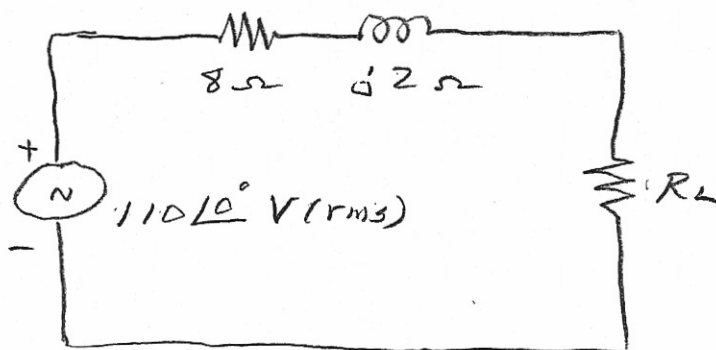 8 Ω j 2 Ω
+
~ 110 ∠0° V (rms) RL
-